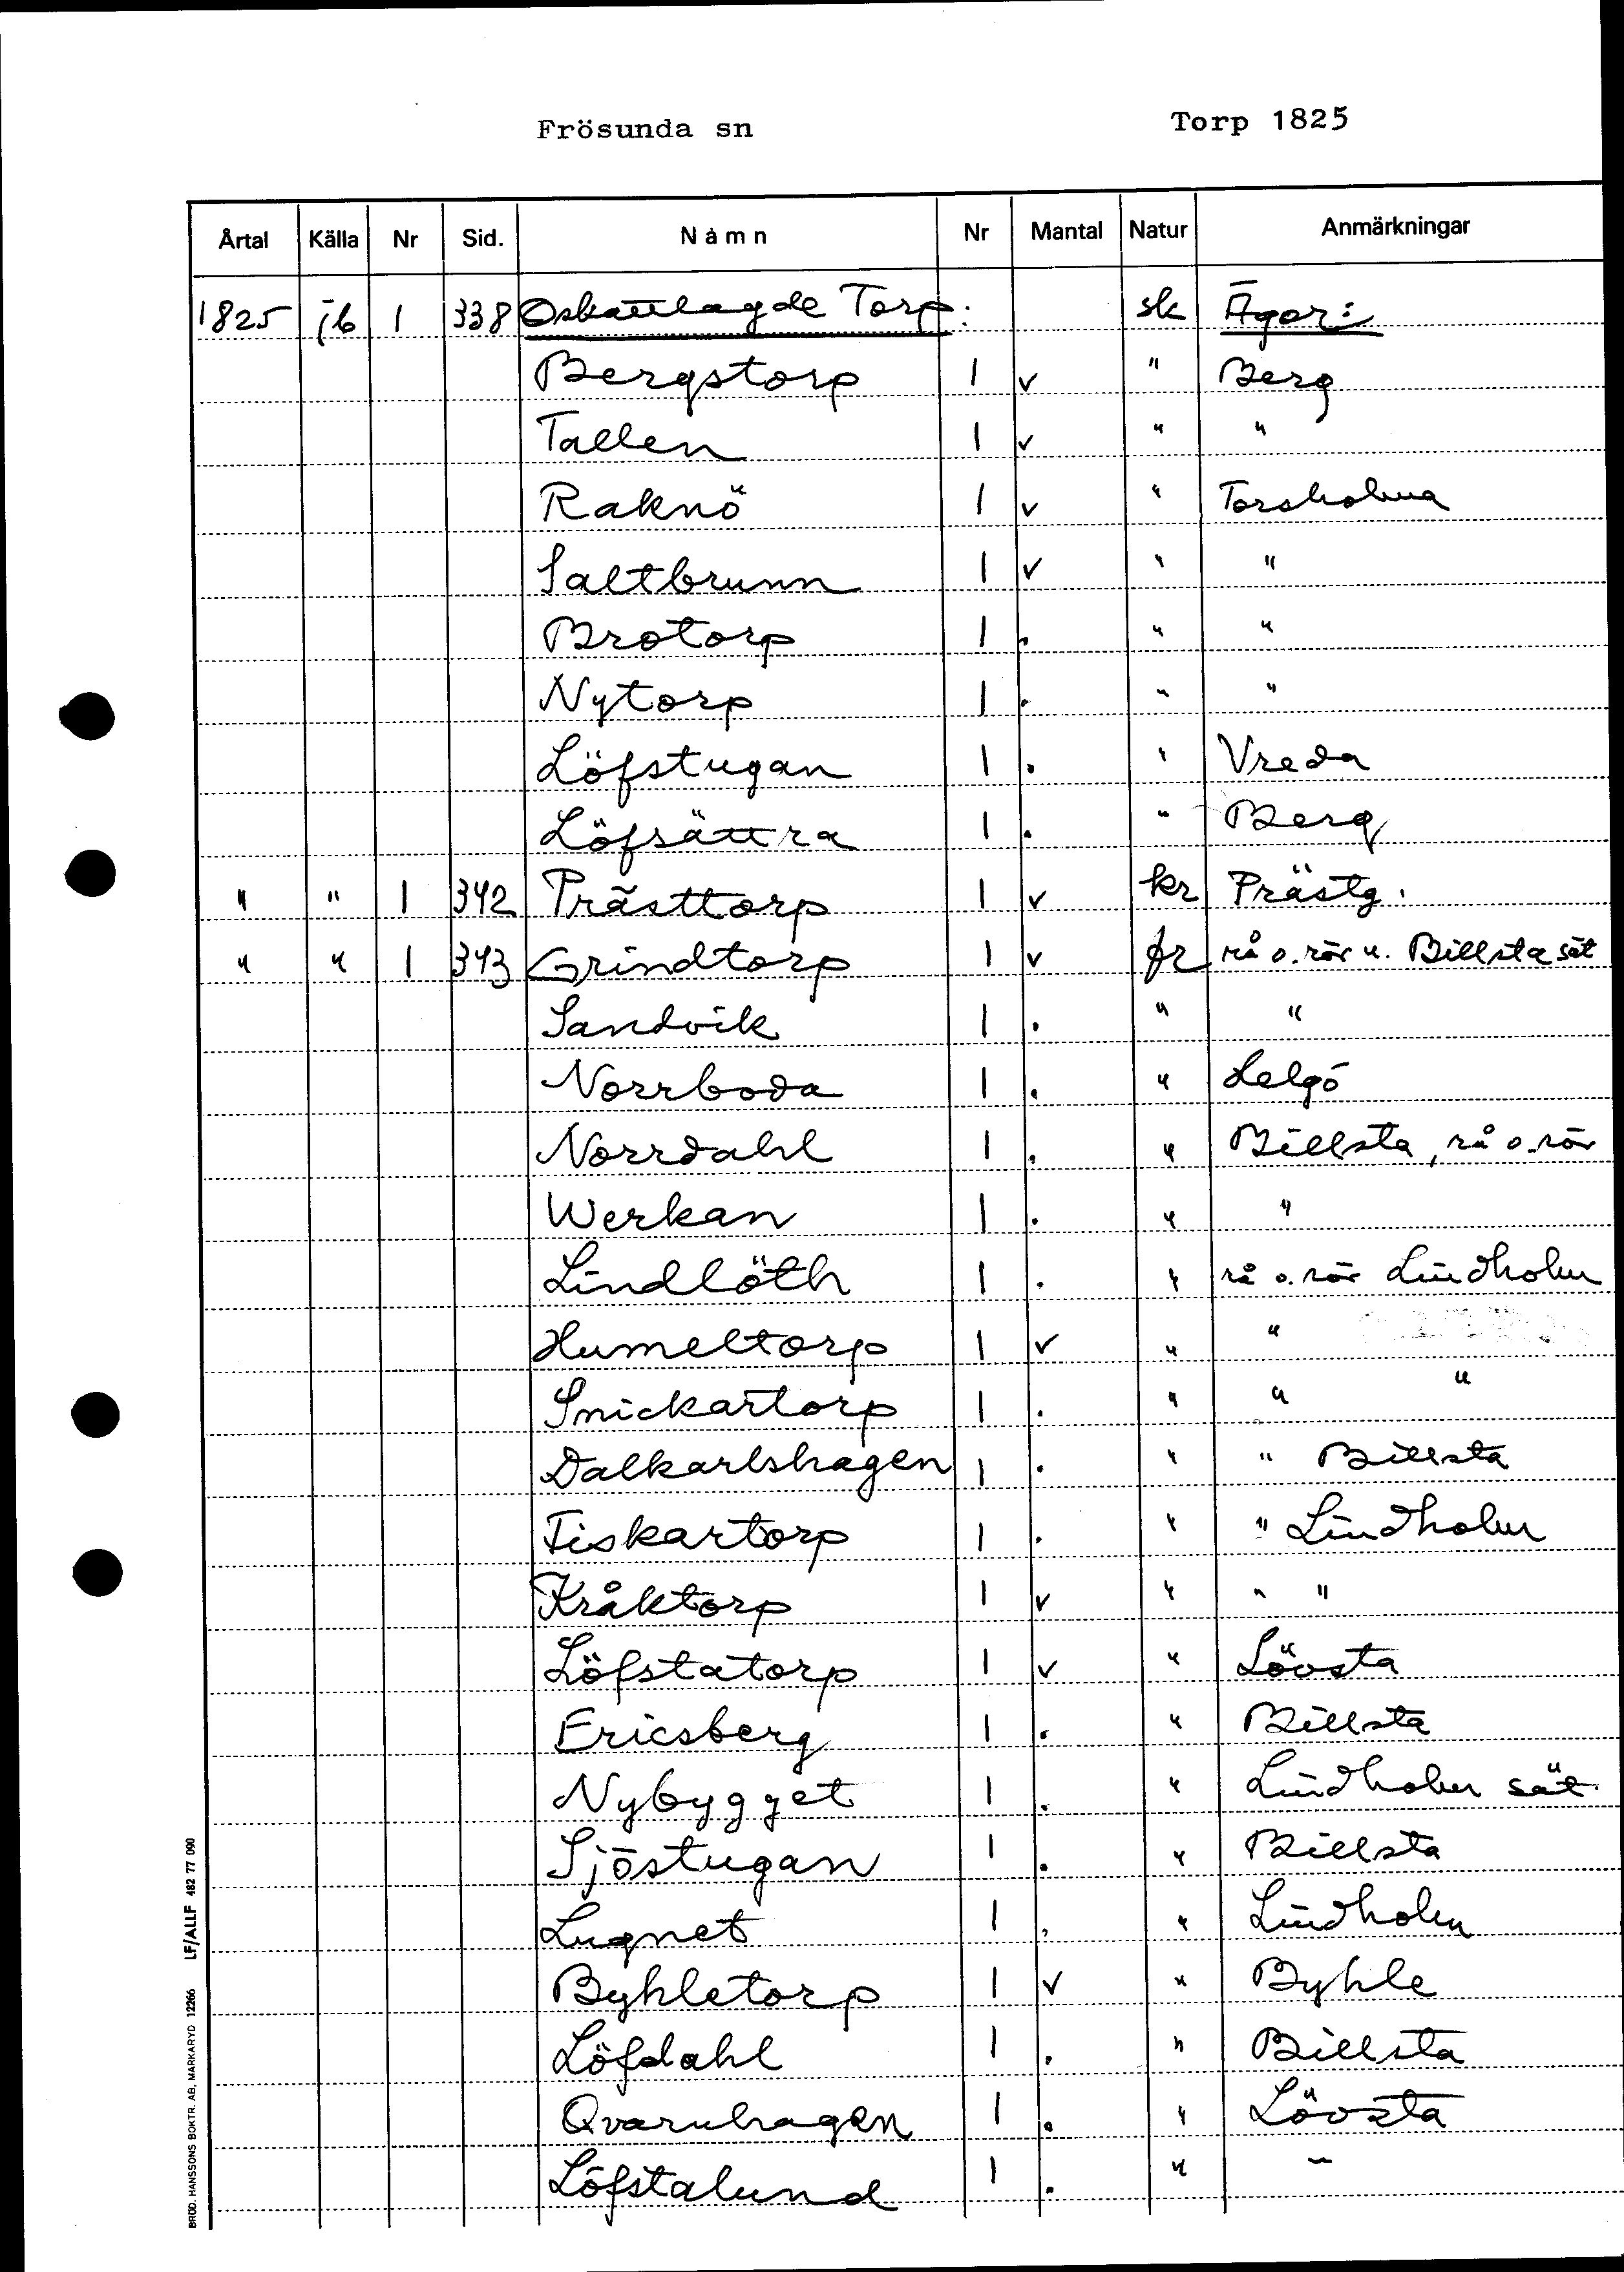 Frösunda sn Torp 1825
Årtal Källa Nr Sid. Namn Nr Mantal Natur Anmärkningar
1825 jb 1 338 Oskattlagde Torp: sk Ägor:
Bergstorp 1 v " Berg
Tallen 1 v " "
Raknö 1 v " Torsholma
Saltbrunn 1 v " "
Brotorp 1 . " "
Nytorp 1 . " "
Löfstugan 1 . " Vreda
Löfsättra 1 . " Berg
" " 1 342 Prästtorp 1 v kr Prästg.
" " 1 343 Grindtorp 1 v fr rå o. rör u. Billsta sät
Sandvik 1 . " "
Norrboda 1 . " Helgö
Norrdahl 1 . " Billsta, rå o. rör
Werkan 1 . " "
Lindlöth 1 . " rå o. rör Lindholm
Humeltorp 1 v " "
Snickartorp 1 . " " "
Dalkarlshagen 1 . " " Billsta
Fiskartorp 1 . " " Lindholm
Kråktorp 1 v " " "
Löfstatorp 1 v " Lövsta
Ericsberg 1 . " Billsta
Nybygget 1 . " Lindholm sät.
Sjöstugan 1 . " Billsta
Lugnet 1 . " Lindholm
Byhletorp 1 v " Byhle
Löfdahl 1 . " Billsta
Qvarnhagen 1 . " Lövsta
Löfstalund 1 . " "
BRÖD. HANSSONS BOKTR. AB, MARKARYD 12266 LF/ALLF 482 77 090